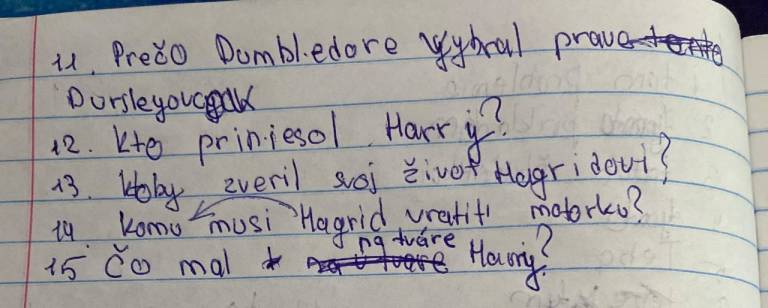 11. Prečo Dumbledore vybral prave
Dursleyovcov
12. Kto priniesol Harry?
13. Kto by zveril svoj život Hagridovi?
14. Komu musi Hagrid vratiti motorku?
na tváre
15 Čo mal Harry?